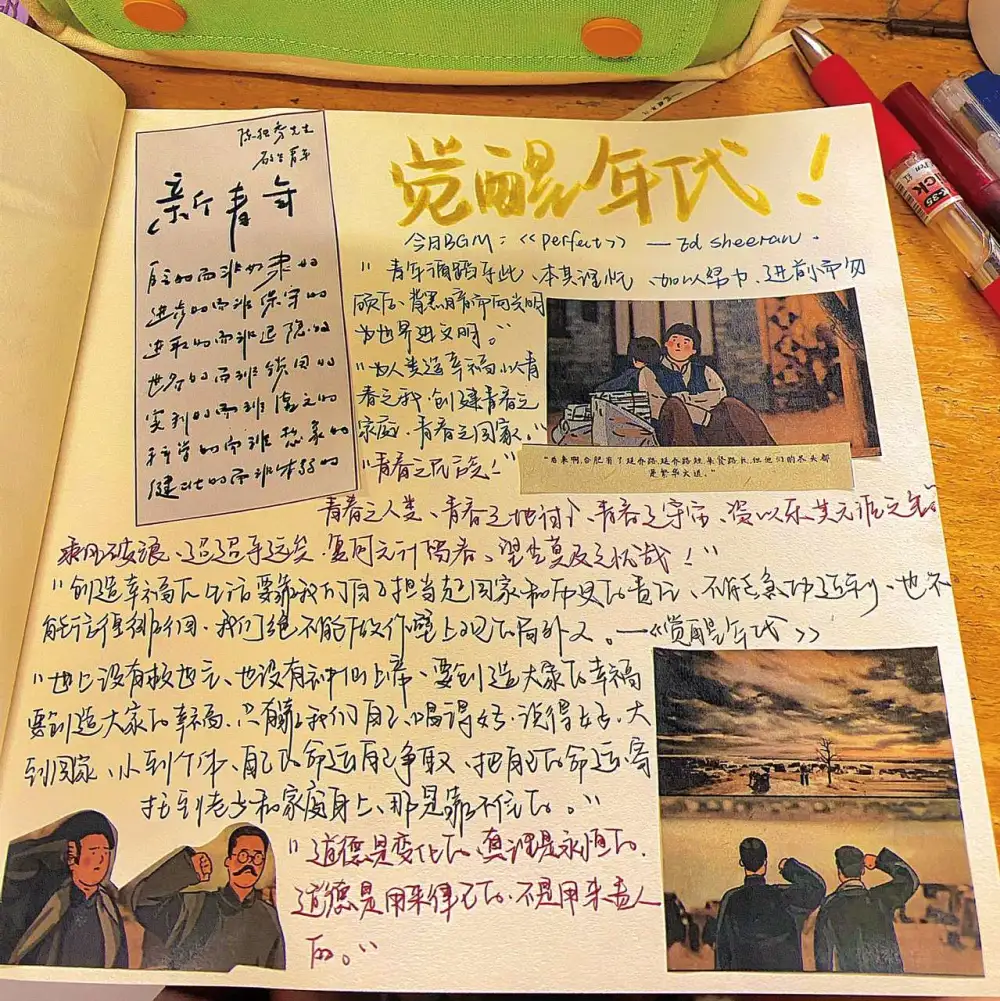 陈独秀先生
敬告青年
新青年
自主的而非奴隶的
进步的而非保守的
进取的而非退隐的
世界的而非锁国的
实利的而非虚文的
科学的而非想象的
健壮的而非体弱的
觉醒年代!
今日BGM:《Perfect》 — Ed sheeran.
"青年循蹈乎此、本其理性、加以努力、进前而勿
顾后、背黑暗而向光明
为世界进文明。"
"为人类造幸福,以青
春之我,创建青春之
家庭,青春之国家。"
"青春之民族!"
"后来啊,合肥有了延乔路,延乔路短,集贤路长,但他们的尽头都
是繁华大道。"
青春之人类、青春之地球、青春之宇宙、资以乐其无涯之生。
乘风破浪、迢迢乎远矣,复何无计留春、望尘莫及之忧哉!"
"创造幸福的生活要靠我们自己担当起国家和历史的责任、不能急功近利、也不
能,我们绝不能做作壁上观的局外人。—《觉醒年代》
"世上没有救世主、也没有神仙上帝、要创造大家的幸福
要创造大家的幸福,只有靠我们自己,唱得好,说得好,大
到国家、小到个体、自己的命运自己争取、把自己的命运寄
托到老乡和家庭身上、那是靠不住的。"
"道德是变化的,真理是永恒的,
道德是用来律己的,不是用来责人
的。"